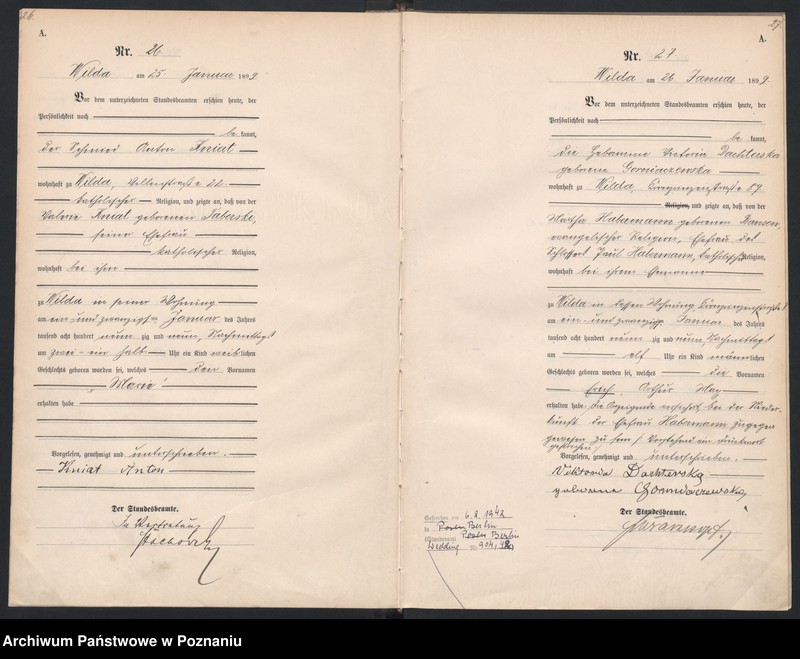 26.
A.
Nr. 26
Wilda am 25 Januar 1899
Vor dem unterzeichneten Standesbeamten erschien heute, der
Persönlichkeit nach
be kannt,
der Schmied Anton Kniat
wohnhaft zu Wilda, 22
katholischer Religion, und zeigte an, daß von der
Kniat geborenen Taberski,
seiner Ehefrau
katholischer Religion,
wohnhaft bei ihm
zu Wilda in seiner Wohnung
am ein und zwanzigsten Januar des Jahres
tausend acht hundert neun zig und neun, Nachmittags
um zwei ein halb Uhr ein Kind weiblichen
Geschlechts geboren worden sei, welches den Vornamen
Maria
erhalten habe
Vorgelesen, genehmigt und unterschrieben.
Kniat Anton
Der Standesbeamte.
In Vertretung
27
A.
Nr. 27
Wilda am 26 Januar 1899
Vor dem unterzeichneten Standesbeamten erschien heute, der
Persönlichkeit nach
be kannt,
die Hebamme Victoria Dachterska
geborene Gorniaczewska
wohnhaft zu Wilda, 59
Religion, und zeigte an, daß von der
Martha Habermann geborenen
evangelischer Religion, Ehefrau des
Schlossers Paul Habermann, katholischer Religion,
wohnhaft bei ihrem Ehemanne
zu Wilda in dessen Wohnung
am ein und zwanzigsten Januar des Jahres
tausend acht hundert neun zig und neun, Nachmittags
um elf Uhr ein Kind männlichen
Geschlechts geboren worden sei, welches die Vornamen
Erich Arthur Max
erhalten habe. Die Anzeigende versichert bei der Nieder-
kunft der Ehefrau Habermann zugegen
gewesen zu sein. Vorstehend ein Druckwort
gestrichen
Vorgelesen, genehmigt und unterschrieben.
Viktoria Dachterska
geborene Gorniaczewska
Der Standesbeamte.
Gestorben am 6.2.1942
in Berlin
(Standesamt) Berlin
Wedding Nr. 904/42
Archiwum Państwowe w Poznaniu